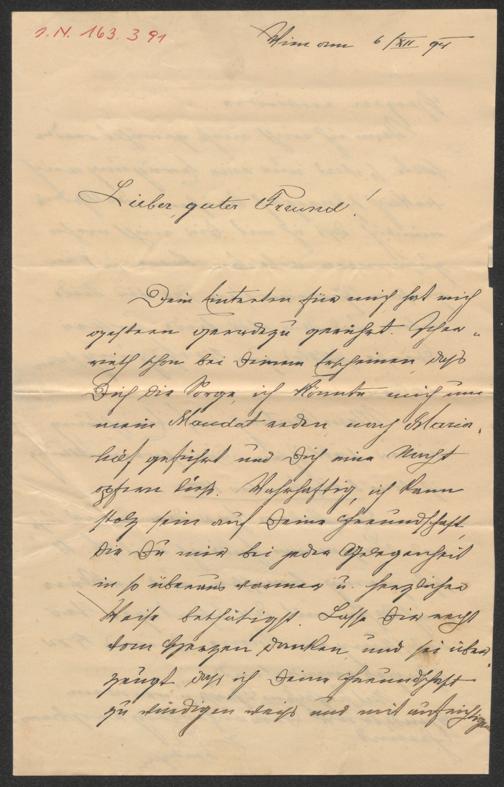 J. N. 163.391
Wien am 6/XII 94
Lieber, guter Freund!
Dein Eintreten für mich hat mich
gestern geradezu gerührt. Ich er-
rieth schon bei Deinem Erscheinen, daß
Dich die Sorge ich könnte mich um
mein Mandat reden nach Maria-
hilf geführt und Dich eine Nacht
opfern ließ. Wahrhaftig, ich kann
stolz sein auf Deine Freundschaft,
die Du mir bei jeder Gelegenheit
in so überaus warmer u. herzlicher
Weise bethätigst. Lasse Dir recht
vom Herzen danken und sei über-
zeugt, daß ich Deine Freundschaft
zu würdigen weiß und mit aufrichtiger